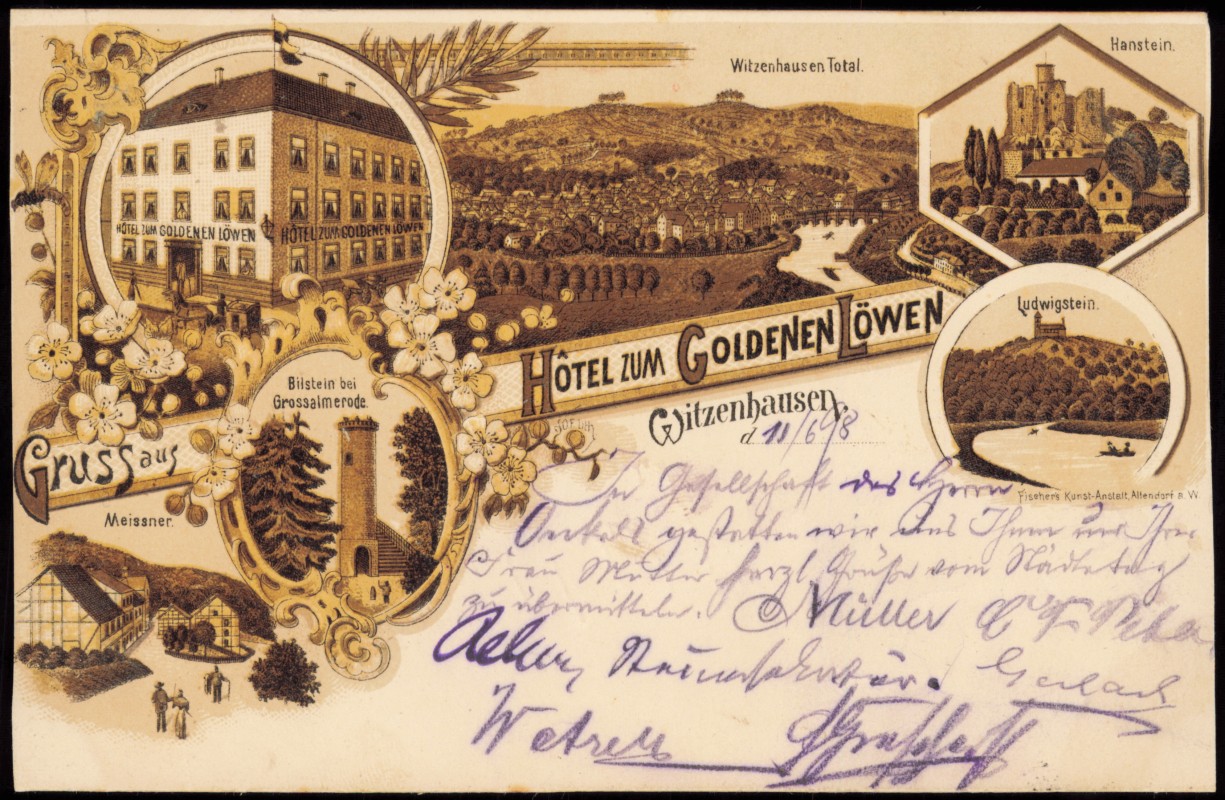 Witzenhausen Total.
Hanstein.
HÔTEL ZUM GOLDENEN LÖWEN
HÔTEL ZUM GOLDENEN LÖWEN
Ludwigstein.
HÔTEL ZUM GOLDENEN LÖWEN
Bilstein bei
Grossalmerode.
Witzenhausen,
d. 11/6 98
Gruss aus
Meissner.
Fischer's Kunst-Anstalt, Allendorf a. W.
In Gesellschaft des Herrn
Onkels gestatten wir uns Ihnen und Ihrer
Frau Mutter herzl. Grüße vom Städtetag
zu übermitteln. Müller
Gerlach